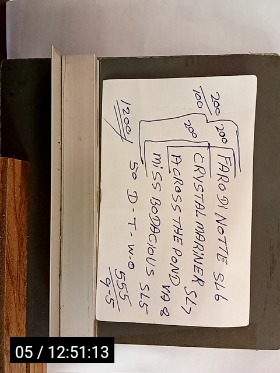 FARO DI NOTTE SL6
CRYSTAL MARINER SL7
ACROSS THE POND VA 2
MISS BODACIOUS SL5
50 D-T-W.O
200 200
100
200
1200
555
9-5
05 / 12:51:13